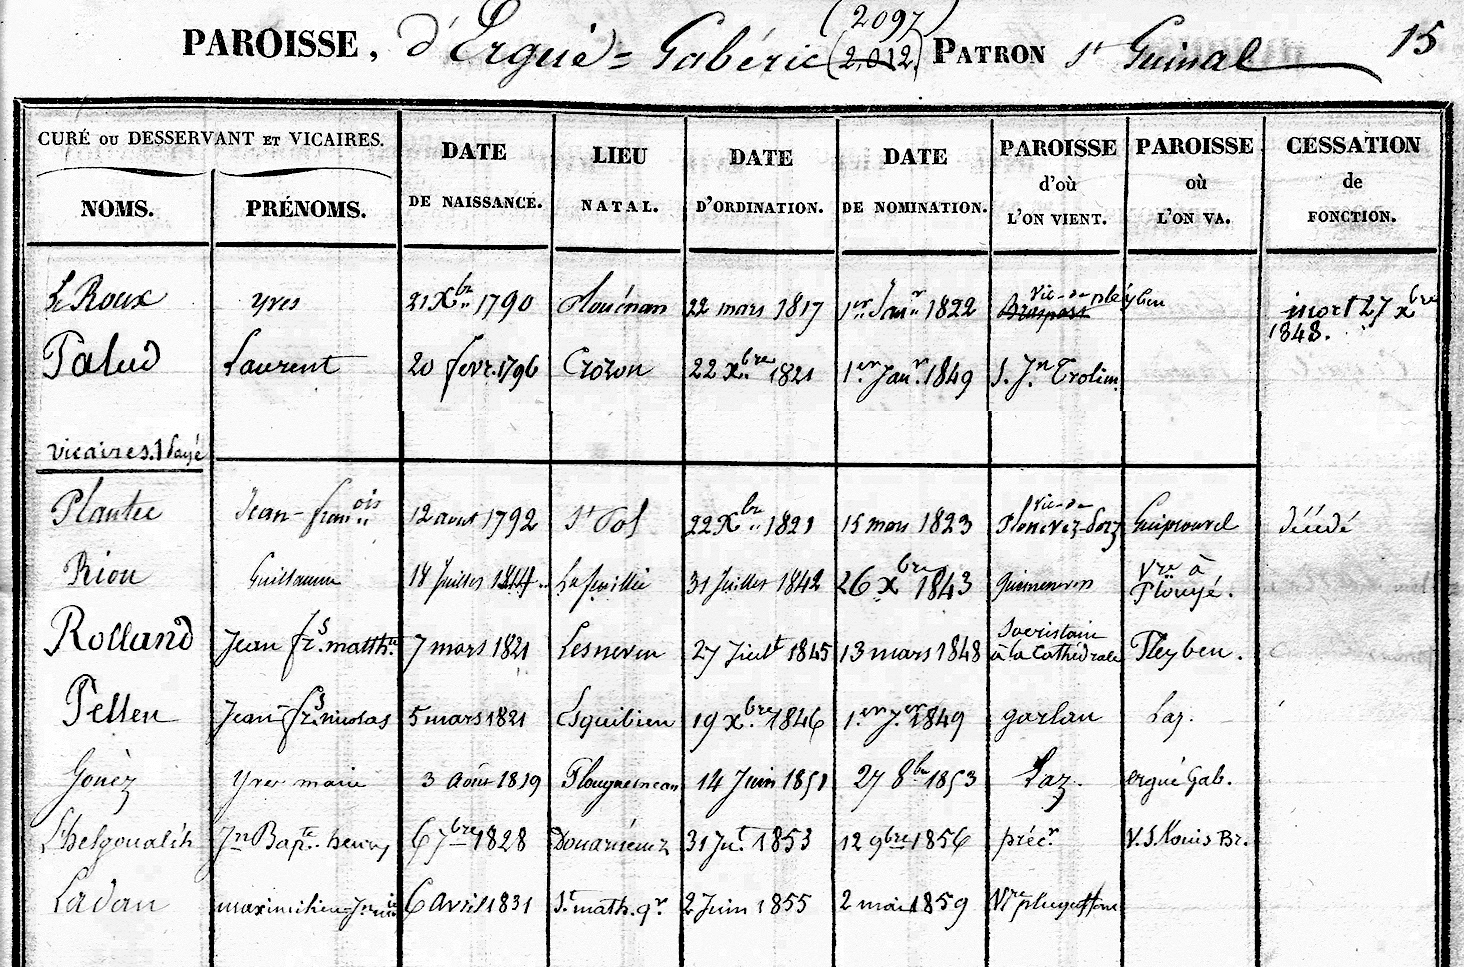 (2097)
PAROISSE, d'Ergué-Gabéric (2,012) PATRON St Guinal 15
CURÉ OU DESSERVANT ET VICAIRES.
NOMS. PRÉNOMS. DATE DE NAISSANCE. LIEU NATAL. DATE D'ORDINATION. DATE DE NOMINATION. PAROISSE d'où L'ON VIENT. PAROISSE où L'ON VA. CESSATION de FONCTION.
Le Roux yves 21 Xbre 1790 Plouénan 22 mars 1817 1er Janr 1822 vic. de pleyben mort 27 xbre 1848.
Palud Laurent 20 fevr. 1796 Crozon 22 xbre 1821 1er Janr. 1849 S. Jn Trolim.
vicaires. 1 payé
Plantec Jean-françois 12 aout 1792 St Pol 22 Xbre 1821 15 mars 1823 vic. de Plonevez-porz Guiprouvel décédé
Riou Guillaume 18 Juillet 1844 La feuillée 31 Juillet 1842 26 xbre 1843 guimenven vre à Plouyé.
Rolland Jean frs. matth. 7 mars 1821 Lesneven 27 Juilt 1845 13 mars 1848 Sacristain à la Cathédrale Pleyben.
Pellen Jean-frs. nicolas 5 mars 1821 Esquibien 19 xbre 1846 1er Jer 1849 garlan Laz.
Gouèz yves marie 3 août 1819 Plouyneneau 14 Juin 1851 27 8bre 1853 Laz. ergué Gab.
L'helgoualc'h Jn Bapte. henry 6 7bre 1828 Douarnénez 31 Jt. 1853 12 9bre 1856 précr V. S. Louis Br.
Ladan maximilien Jn mie 6 avril 1831 St. math. qr. 2 Juin 1855 2 mai 1859 Vre pluguffan